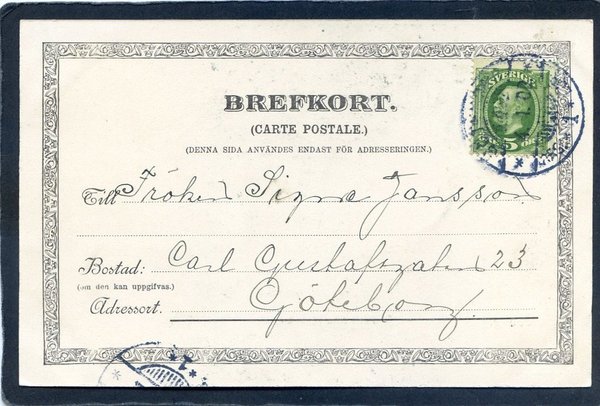 BREFKORT.
(CARTE POSTALE.)
(DENNA SIDA ANVÄNDES ENDAST FÖR ADRESSERINGEN.)
SVERIGE
5
Till Fröken Signe Jansson
Bostad: Carl Gustafsgatan 23
(om den kan uppgifvas.)
Adressort. Göteborg